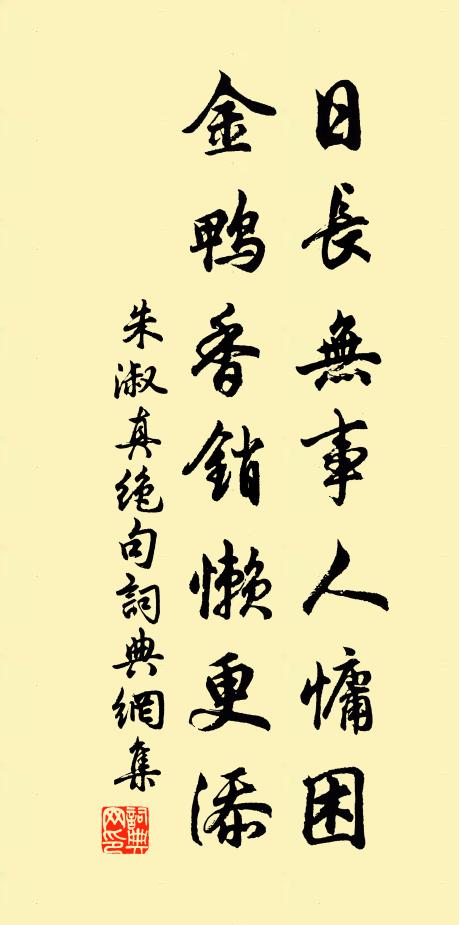 日長無事人慵困
金鴨香銷懶更添
朱淑真绝句詞典網集
詞典網印